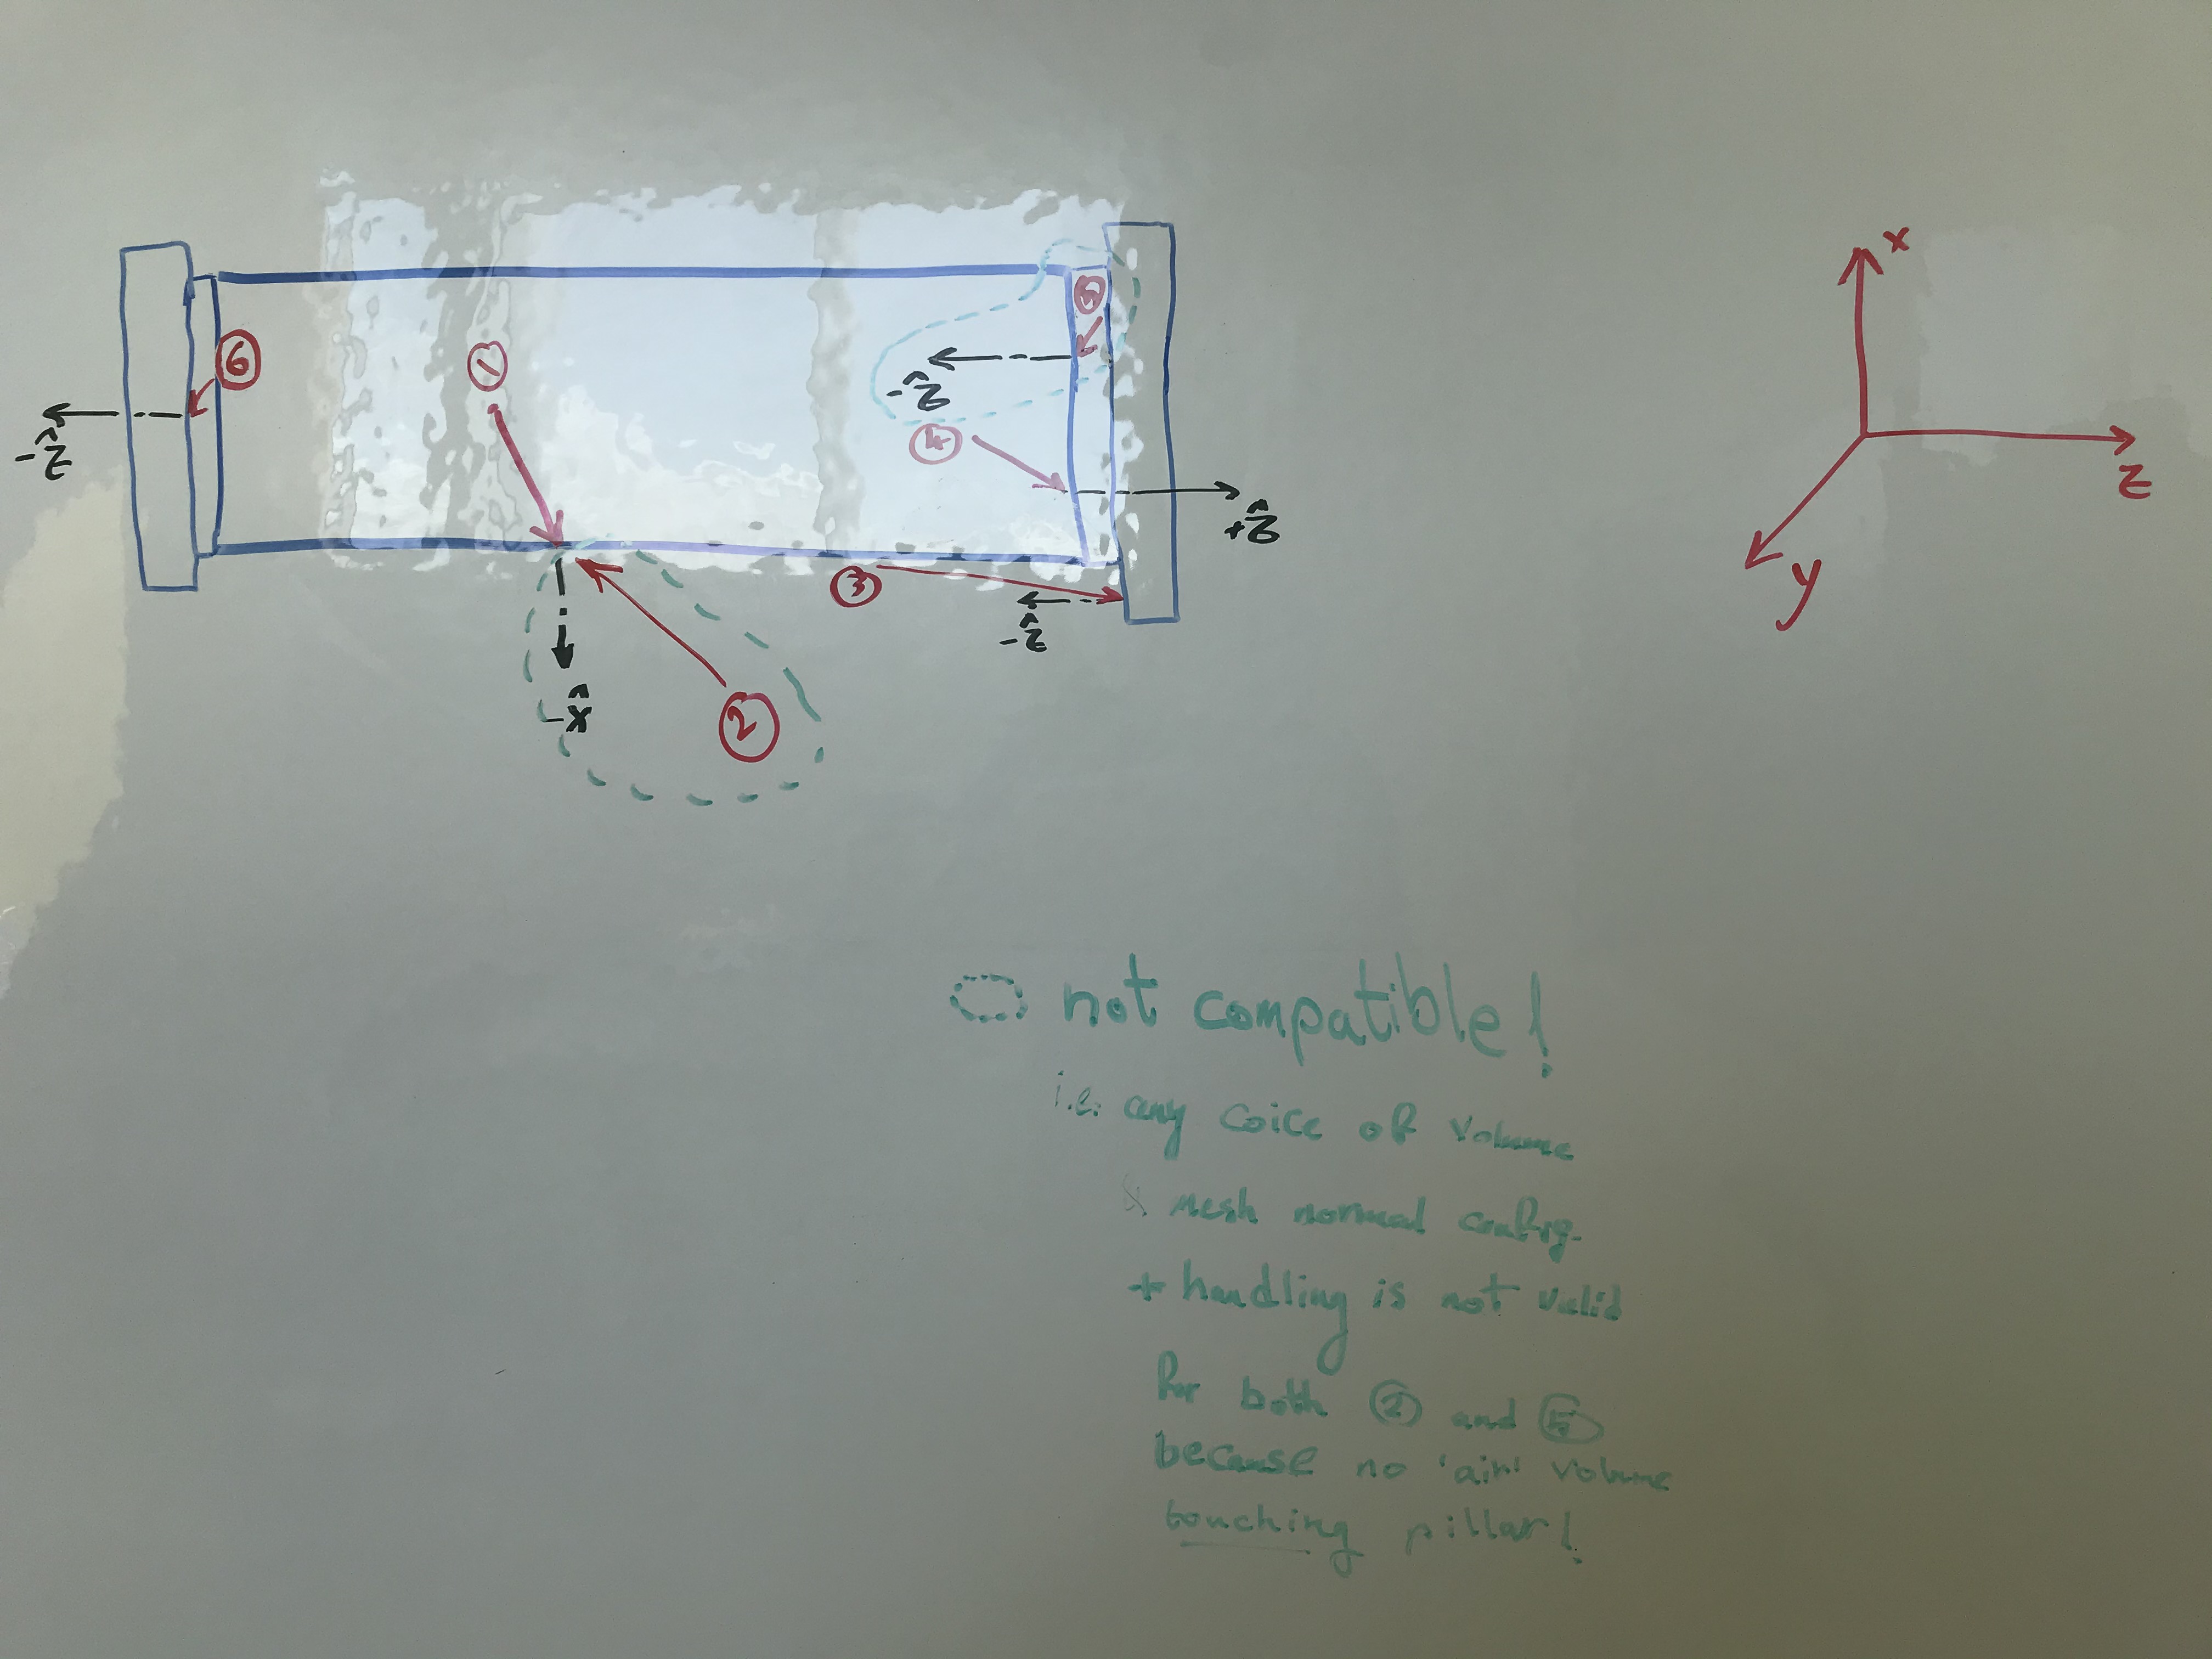 x
5
6
1
-ẑ
-ẑ
4
z
+ẑ
y
3
-ẑ
-x̂
2
not compatible!
i.e. any coice of volume
& mesh normal config.
+ handling is not valid
for both ② and ⑤
because no 'air' volume
touching pillar!